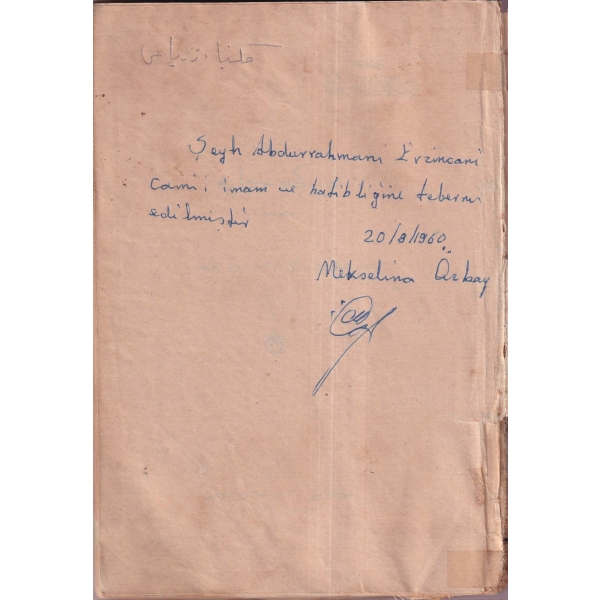 Şeyh Abdurrahmani Erzincani
Cami'i imam ve hatibliğine teberru
edilmiştir
20/9/1960
Mekselina Özbay